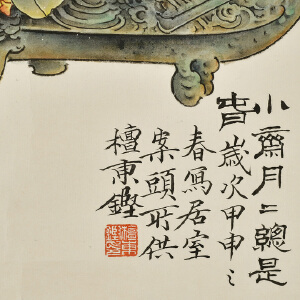 小齋月二總是
旾歲次甲申之
春寫居室
案頭所供
檀東鏗
檀東
鏗印